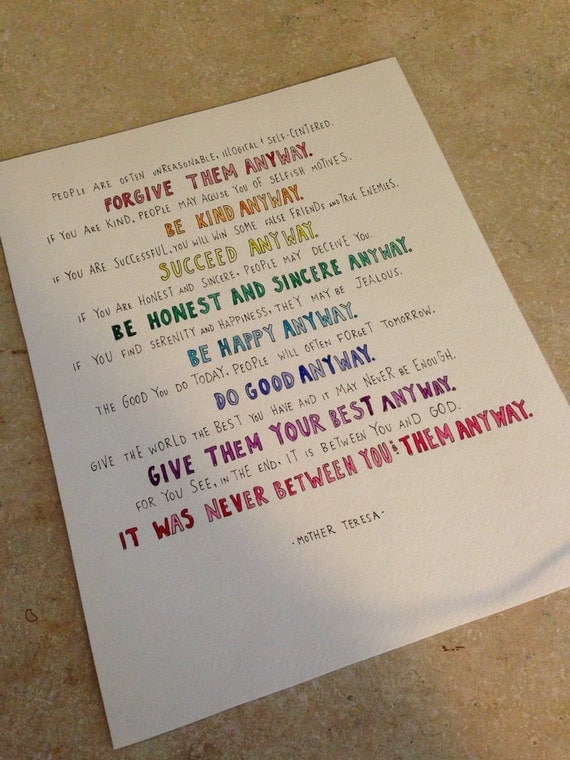 PEOPLE ARE OFTEN UNREASONABLE, ILLOGICAL & SELF-CENTERED.
FORGIVE THEM ANYWAY.
IF YOU ARE KIND, PEOPLE MAY ACCUSE YOU OF SELFISH MOTIVES.
BE KIND ANYWAY.
IF YOU ARE SUCCESSFUL, YOU WILL WIN SOME FALSE FRIENDS AND TRUE ENEMIES.
SUCCEED ANYWAY.
IF YOU ARE HONEST AND SINCERE, PEOPLE MAY DECEIVE YOU.
BE HONEST AND SINCERE ANYWAY.
IF YOU FIND SERENITY AND HAPPINESS, THEY MAY BE JEALOUS.
BE HAPPY ANYWAY.
THE GOOD YOU DO TODAY, PEOPLE WILL OFTEN FORGET TOMORROW.
DO GOOD ANYWAY.
GIVE THE WORLD THE BEST YOU HAVE AND IT MAY NEVER BE ENOUGH.
GIVE THEM YOUR BEST ANYWAY.
FOR YOU SEE, IN THE END, IT IS BETWEEN YOU AND GOD.
IT WAS NEVER BETWEEN YOU & THEM ANYWAY.
-MOTHER TERESA-